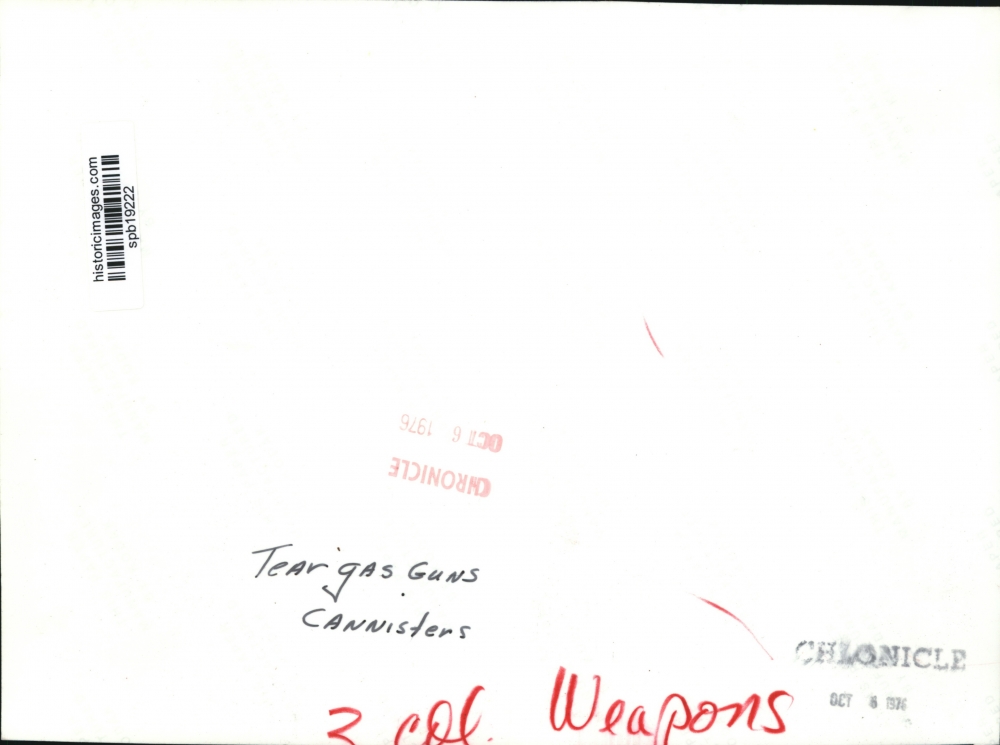 historicimages.com
spb19222
OCT 6 1976
CHRONICLE
Tear gas Guns
Cannisters
CHRONICLE
OCT 6 1976
2 col. Weapons